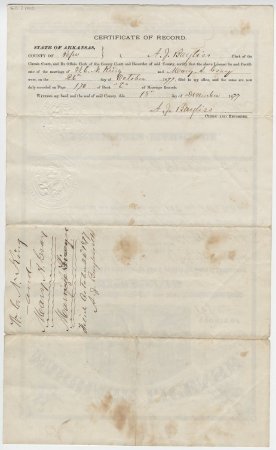 CERTIFICATE OF RECORD.
STATE OF ARKANSAS,
COUNTY OF Pope } I, A. J. Bayliss Clerk of the
Circuit Court, and Ex-Officio Clerk of the County Court and Recorder of said County, certify that the above License for and Certificate
of the marriage of W. C. A. King and Mary A. Cray
were, on the 26th day of October 1877 filed in my office, and the same are now
duly recorded on Page 170 of Book "C" of Marriage Records.
Witness my hand and the seal of said County, this 15th day of December 1877
A. J. Bayliss
CLERK AND RECORDER.
King
and
Mary A. Cray
Marriage License
Filed October 26th 1877
A. J. Bayliss Clk